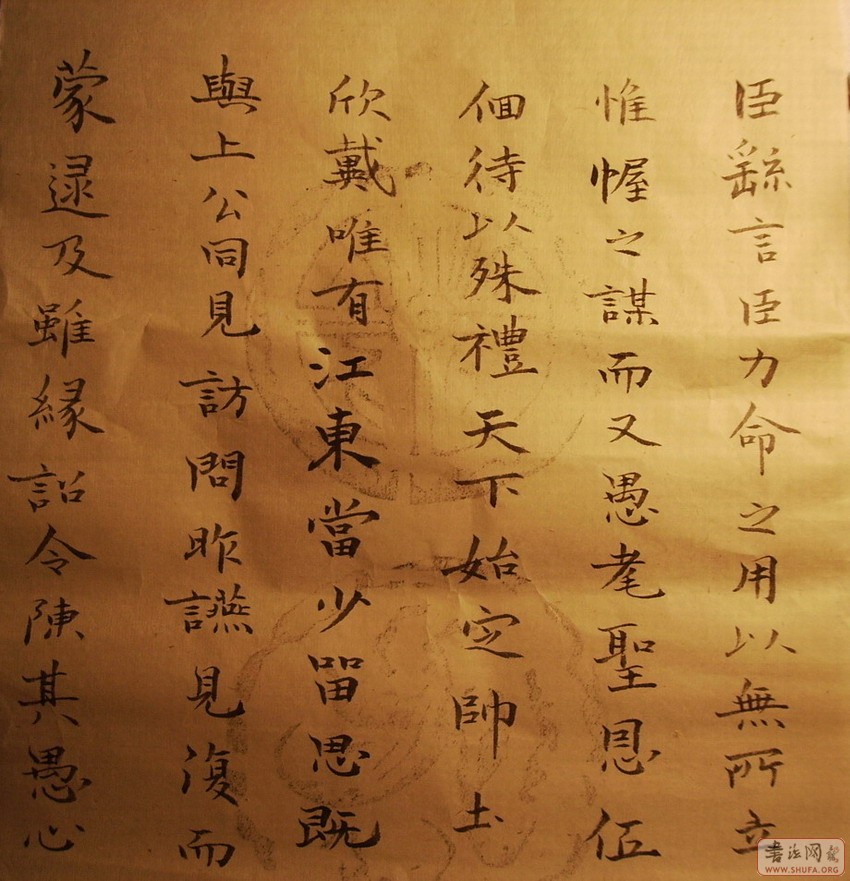 臣繇言臣力命之用以無所立
惟幄之謀而又愚耄聖恩伍
佪待以殊禮天下始定帥土
欣戴唯有江東當少留思既
與上公同見訪問昨讌見復而
蒙逯及雖緣詔令陳其愚心
書法网
WWW.SHUFA.ORG